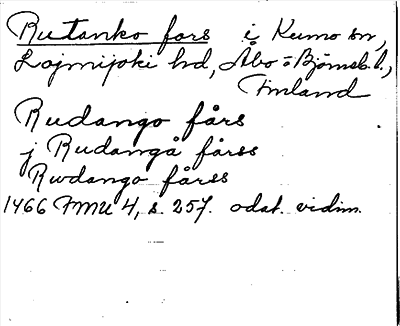 Rutanko fors i Kumo sn,
Lojmijoki hd, Åbo o Björneb. l.,
Finland
Rudango fårs
j Rudangå fårss
Rwdango fårss
1466 FMU 4, s. 257. odat. vidim.